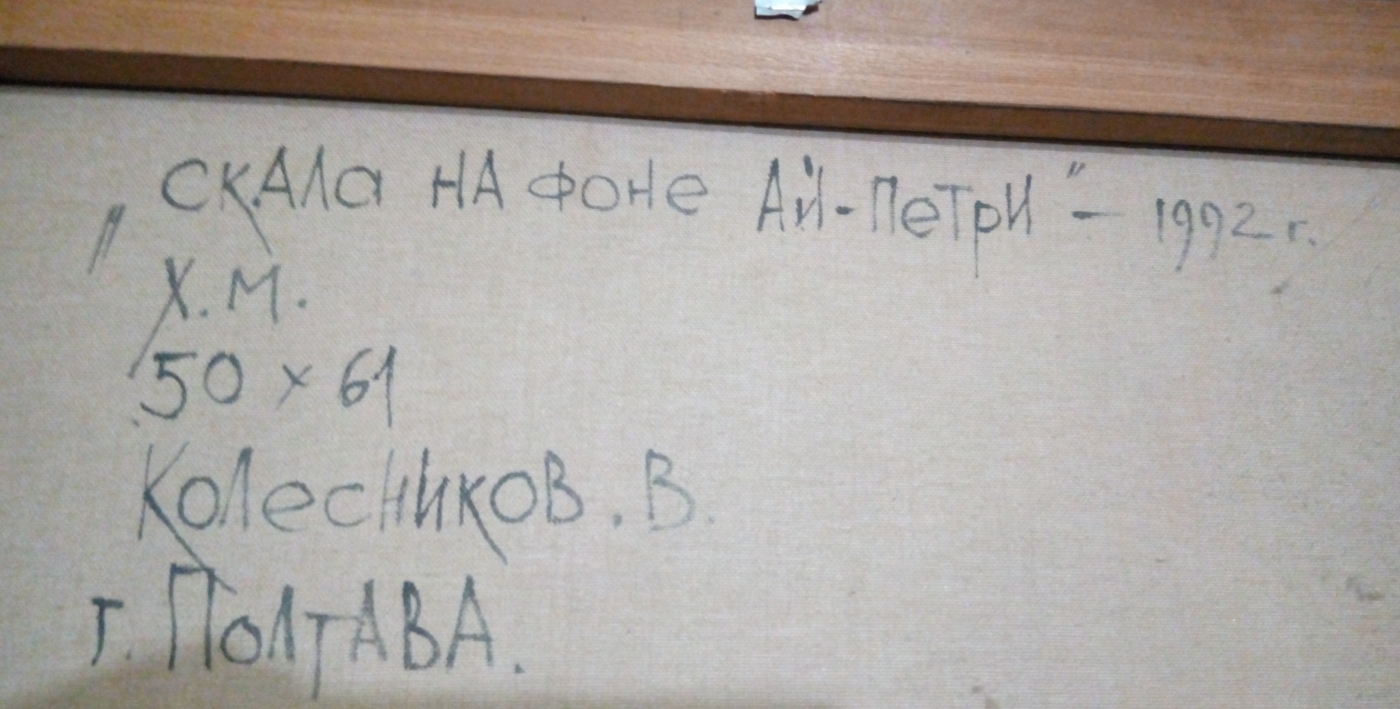 „Скала на фоне Ай-Петри" – 1992 г.
Х.М.
50 x 61
Колесников. В.
г. Полтава.